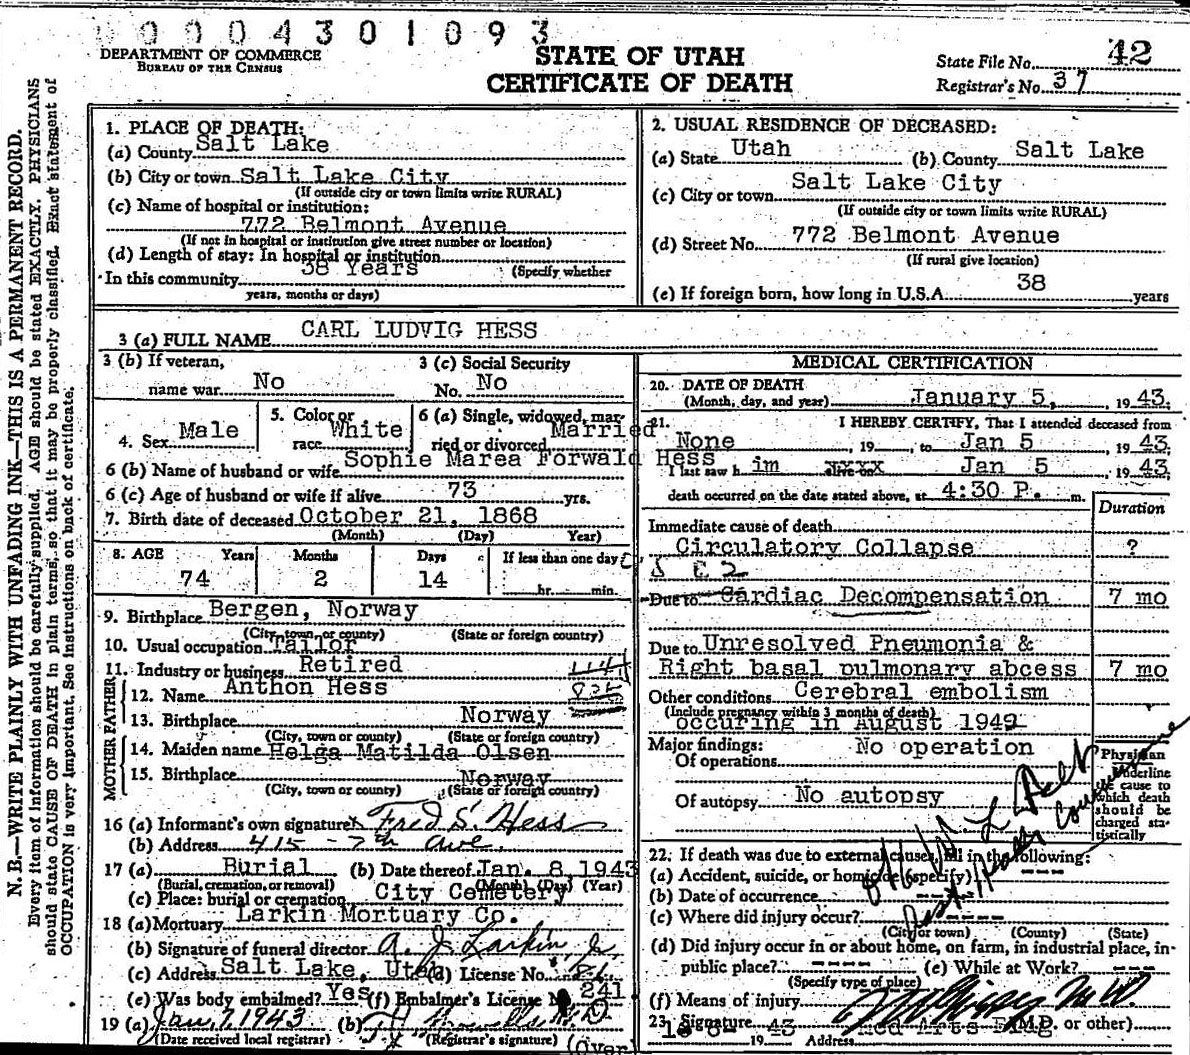 0004301093
DEPARTMENT OF COMMERCE
BUREAU OF THE CENSUS
STATE OF UTAH
CERTIFICATE OF DEATH
State File No. 42
Registrar's No. 37
N. B.—WRITE PLAINLY WITH UNFADING INK—THIS IS A PERMANENT RECORD.
Every item of information should be carefully supplied. AGE should be stated EXACTLY. PHYSICIANS
should state CAUSE OF DEATH in plain terms, so that it may be properly classified. Exact statement of
OCCUPATION is very important. See instructions on back of certificate.
1. PLACE OF DEATH:
(a) County Salt Lake
(b) City or town Salt Lake City
(If outside city or town limits write RURAL)
(c) Name of hospital or institution:
772 Belmont Avenue
(If not in hospital or institution give street number or location)
(d) Length of stay: In hospital or institution
In this community 38 Years (Specify whether
years, months or days)
2. USUAL RESIDENCE OF DECEASED:
(a) State Utah (b) County Salt Lake
(c) City or town Salt Lake City
(If outside city or town limits write RURAL)
(d) Street No. 772 Belmont Avenue
(If rural give location)
(e) If foreign born, how long in U.S.A. 38 years
3 (a) FULL NAME CARL LUDVIG HESS
3 (b) If veteran,
name war No
3 (c) Social Security
No. No
4. Sex Male
5. Color or
race White
6 (a) Single, widowed, mar-
ried or divorced Married
6 (b) Name of husband or wife Sophie Marea Forwald Hess
6 (c) Age of husband or wife if alive 73 yrs.
7. Birth date of deceased October 21, 1868
(Month) (Day) Year)
8. AGE Years Months Days If less than one day
74 2 14 hr. min.
9. Birthplace Bergen, Norway
(City, town, or county) (State or foreign country)
10. Usual occupation Tailor
11. Industry or business Retired
FATHER
12. Name Anthon Hess
13. Birthplace Norway
(City, town or county) (State or foreign country)
MOTHER
14. Maiden name Helga Matilda Olsen
15. Birthplace Norway
(City, town or county) (State or foreign country)
16 (a) Informant's own signature x Fred S. Hess
(b) Address 415 - 7th Ave.
17 (a) Burial (b) Date thereof Jan. 8, 1943
(Burial, cremation, or removal) (Month) (Day) (Year)
(c) Place: burial or cremation City Cemetery
18 (a) Mortuary Larkin Mortuary Co.
(b) Signature of funeral director A. J. Larkin, Jr.
(c) Address Salt Lake, Utah (d) License No.
(e) Was body embalmed? Yes (f) Embalmer's License No. 241
19 (a) Jan, 7, 1943 (b)
(Date received local registrar) (Registrar's signature) (Over)
MEDICAL CERTIFICATION
20. DATE OF DEATH
(Month, day, and year) January 5, 1943.
21. I HEREBY CERTIFY, That I attended deceased from
None, 19 , to Jan 5 1943;
I last saw h im alive on xxxx Jan 5 , 1943
death occurred on the date stated above, at 4:30 P. m.
Duration
Immediate cause of death
Circulatory Collapse ?
Due to Cardiac Decompensation 7 mo
Due to Unresolved Pneumonia &
Right basal pulmonary abcess 7 mo
Other conditions Cerebral embolism
(Include pregnancy within 3 months of death)
occuring in August 1942
Major findings:
Of operations No operation
Of autopsy No autopsy
Physician
Underline
the cause to
which death
should be
charged sta-
tistically
22. If death was due to external causes, fill in the following:
(a) Accident, suicide, or homicide (specify) ---
(b) Date of occurrence ----
(c) Where did injury occur? ----
(City or town) (County) (State)
(d) Did injury occur in or about home, on farm, in industrial place, in-
public place? ---- (e) While at Work? ---
(Specify type of place)
(f) Means of injury
23. Signature (M.D. or other)
19 43 Med Arts Bldg
Address